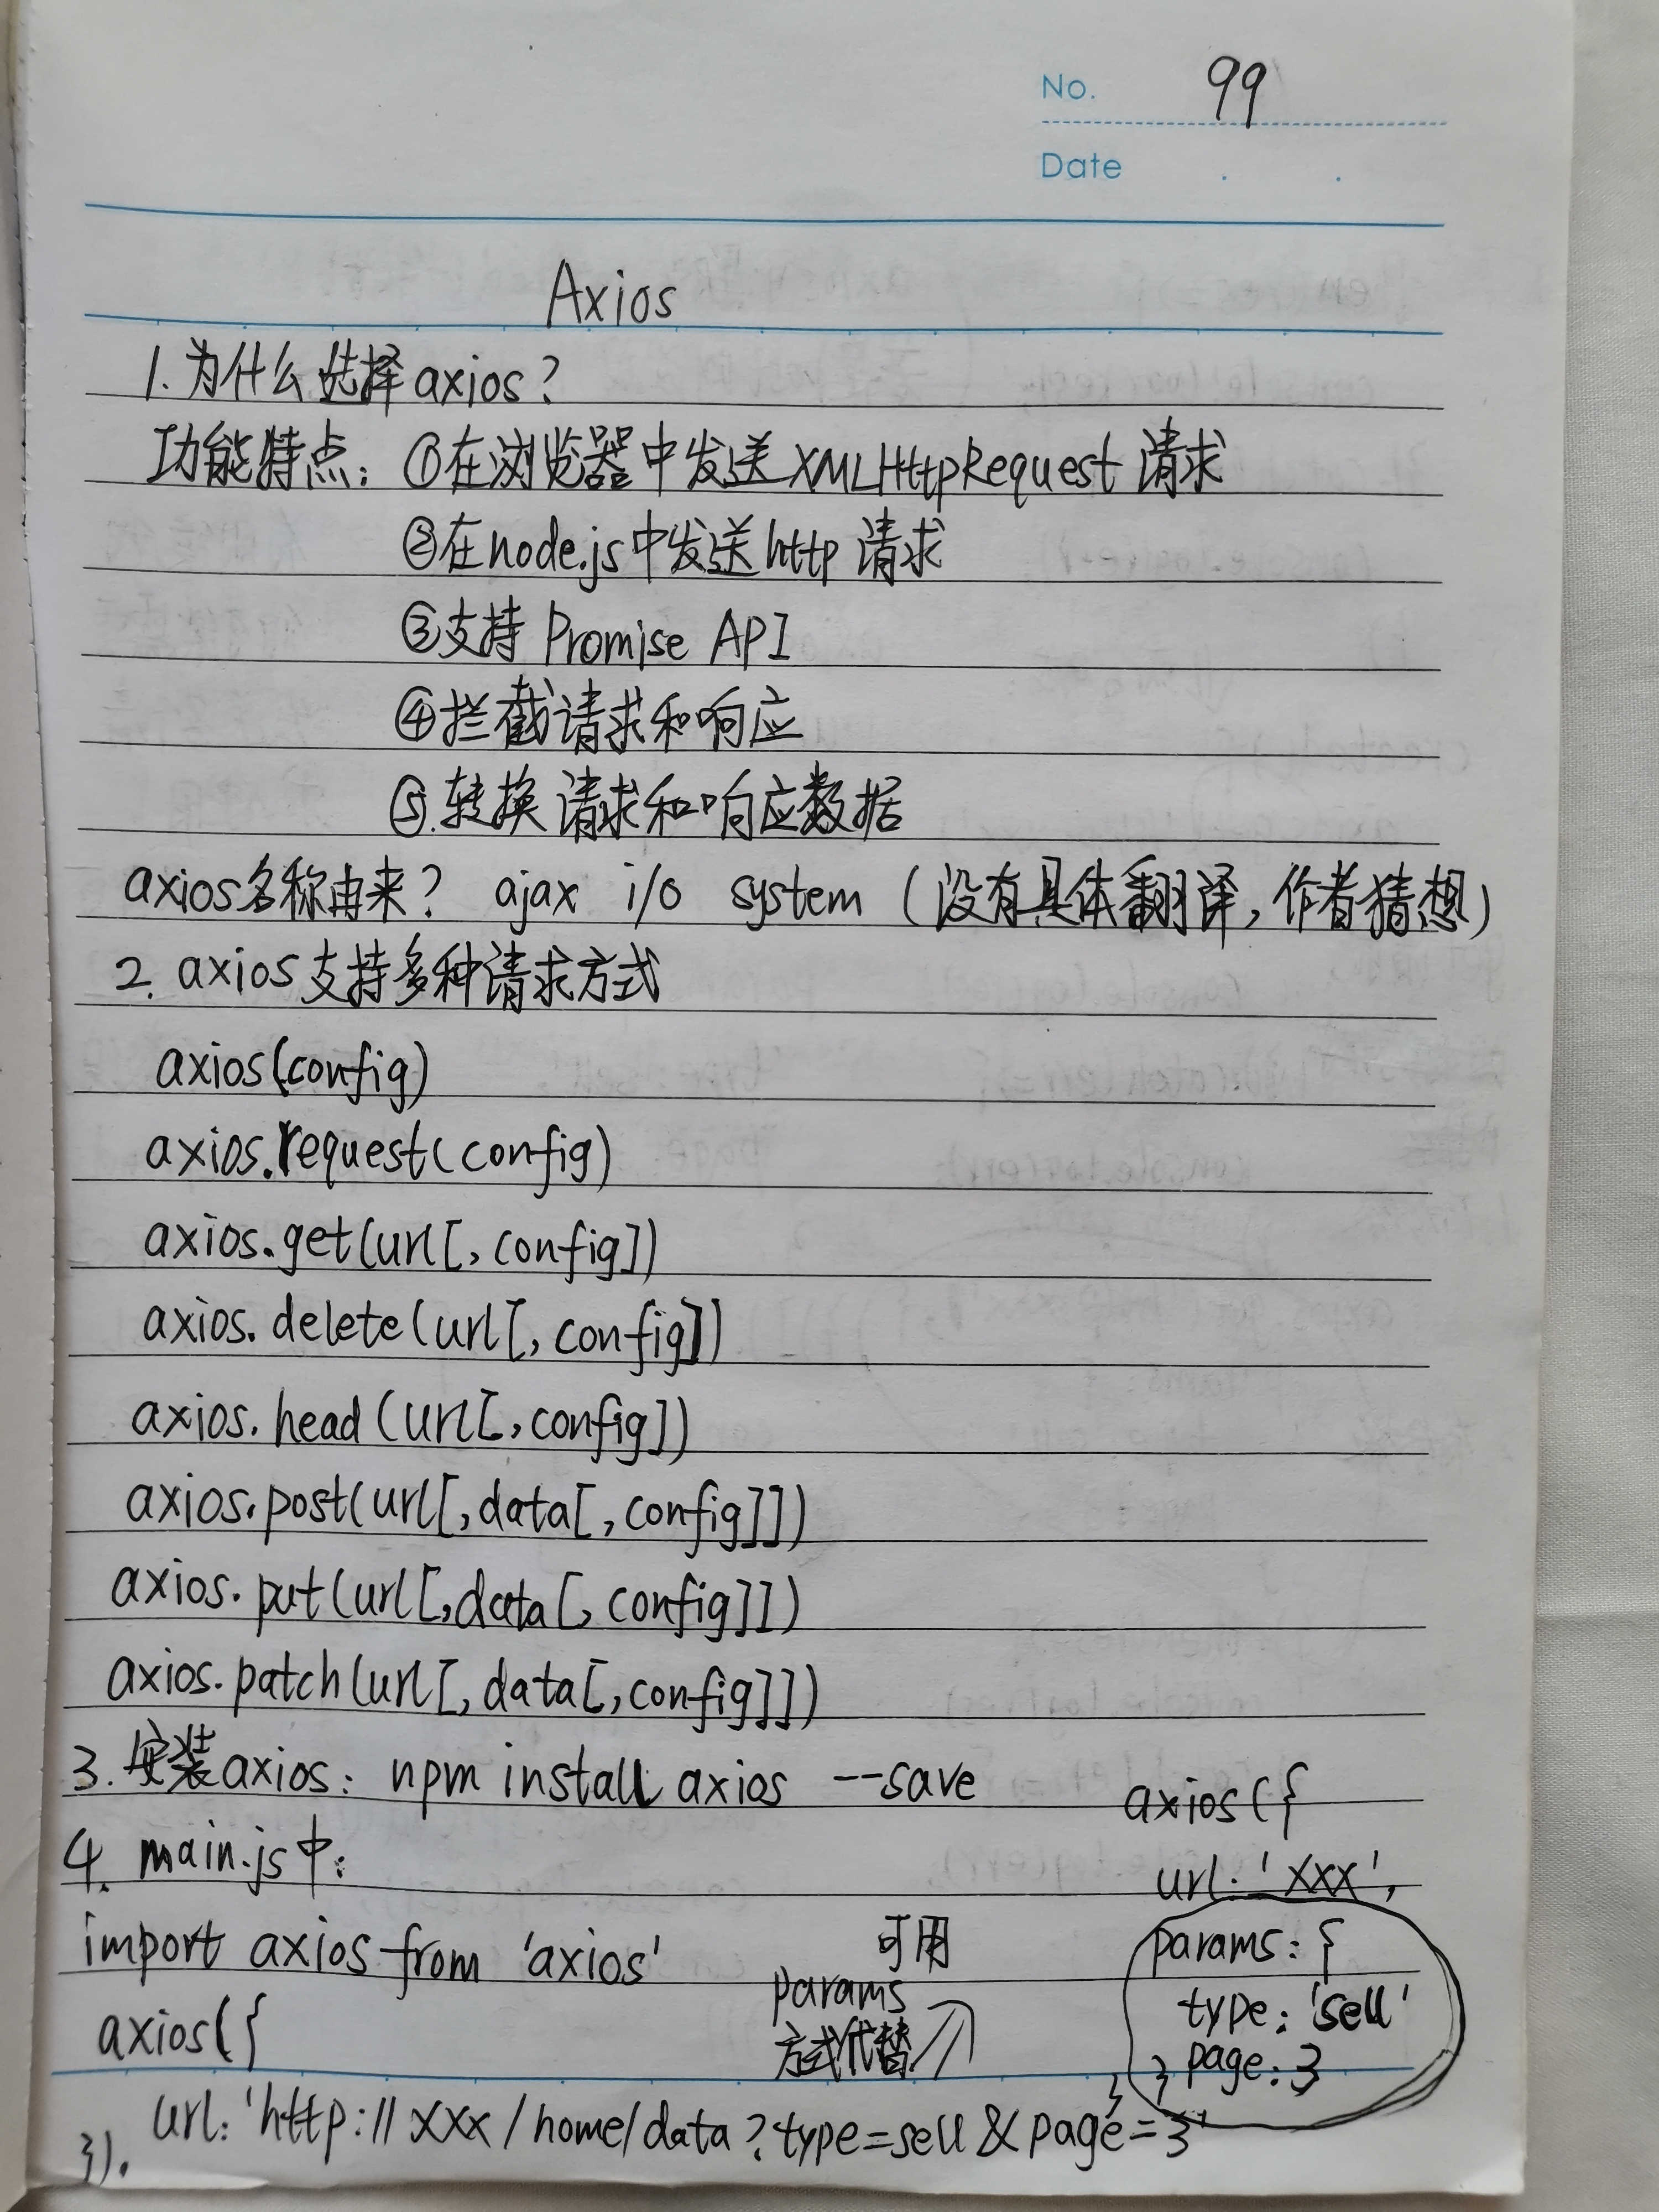 No. 99
Date . .
Axios
1.为什么选择axios?
功能特点：①在浏览器中发送XMLHttpRequest请求
②在node.js中发送http请求
③支持Promise API
④拦截请求和响应
⑤.转换请求和响应数据
axios名称由来? ajax i/o system（没有具体翻译,作者猜想）
2. axios支持多种请求方式
axios(config)
axios.request(config)
axios.get(url[,config])
axios.delete(url[,config])
axios.head(url[,config])
axios.post(url[,data[,config]])
axios.put(url[,data[,config]])
axios.patch(url[,data[,config]])
3.安装axios：npm install axios --save
4. main.js中：
import axios from 'axios'
axios({
url:'http://xxx/home/data?type=sell&page=3'
}).
可用
params
方式代替
axios({
url:'xxx',
params:{
type:'sell'
page:3
}
}